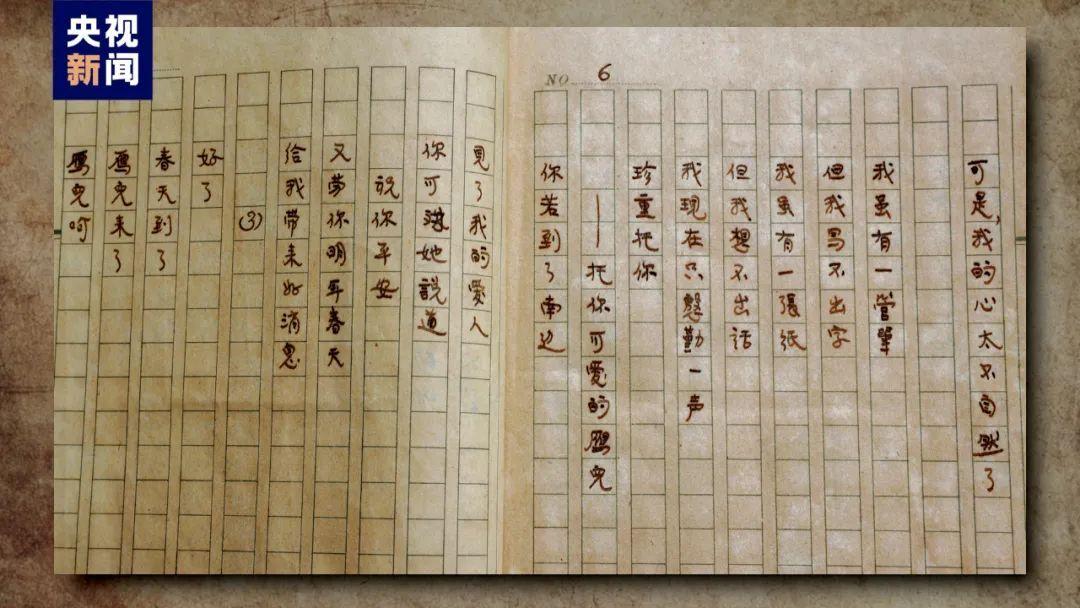 央视
新闻
NO 6
可是,我的心太不自然了
我虽有一管筆
但我写不出字
我虽有一張紙
但我想不出話
我现在只慇勤一声
珍重把你
——托你可愛的雁兒
你若到了南边
見了我的愛人
你可她說道
说你平安
又劳你明年春天
给我带来好消息
(3)
好了
春天到了
雁兒来了
雁兒呵